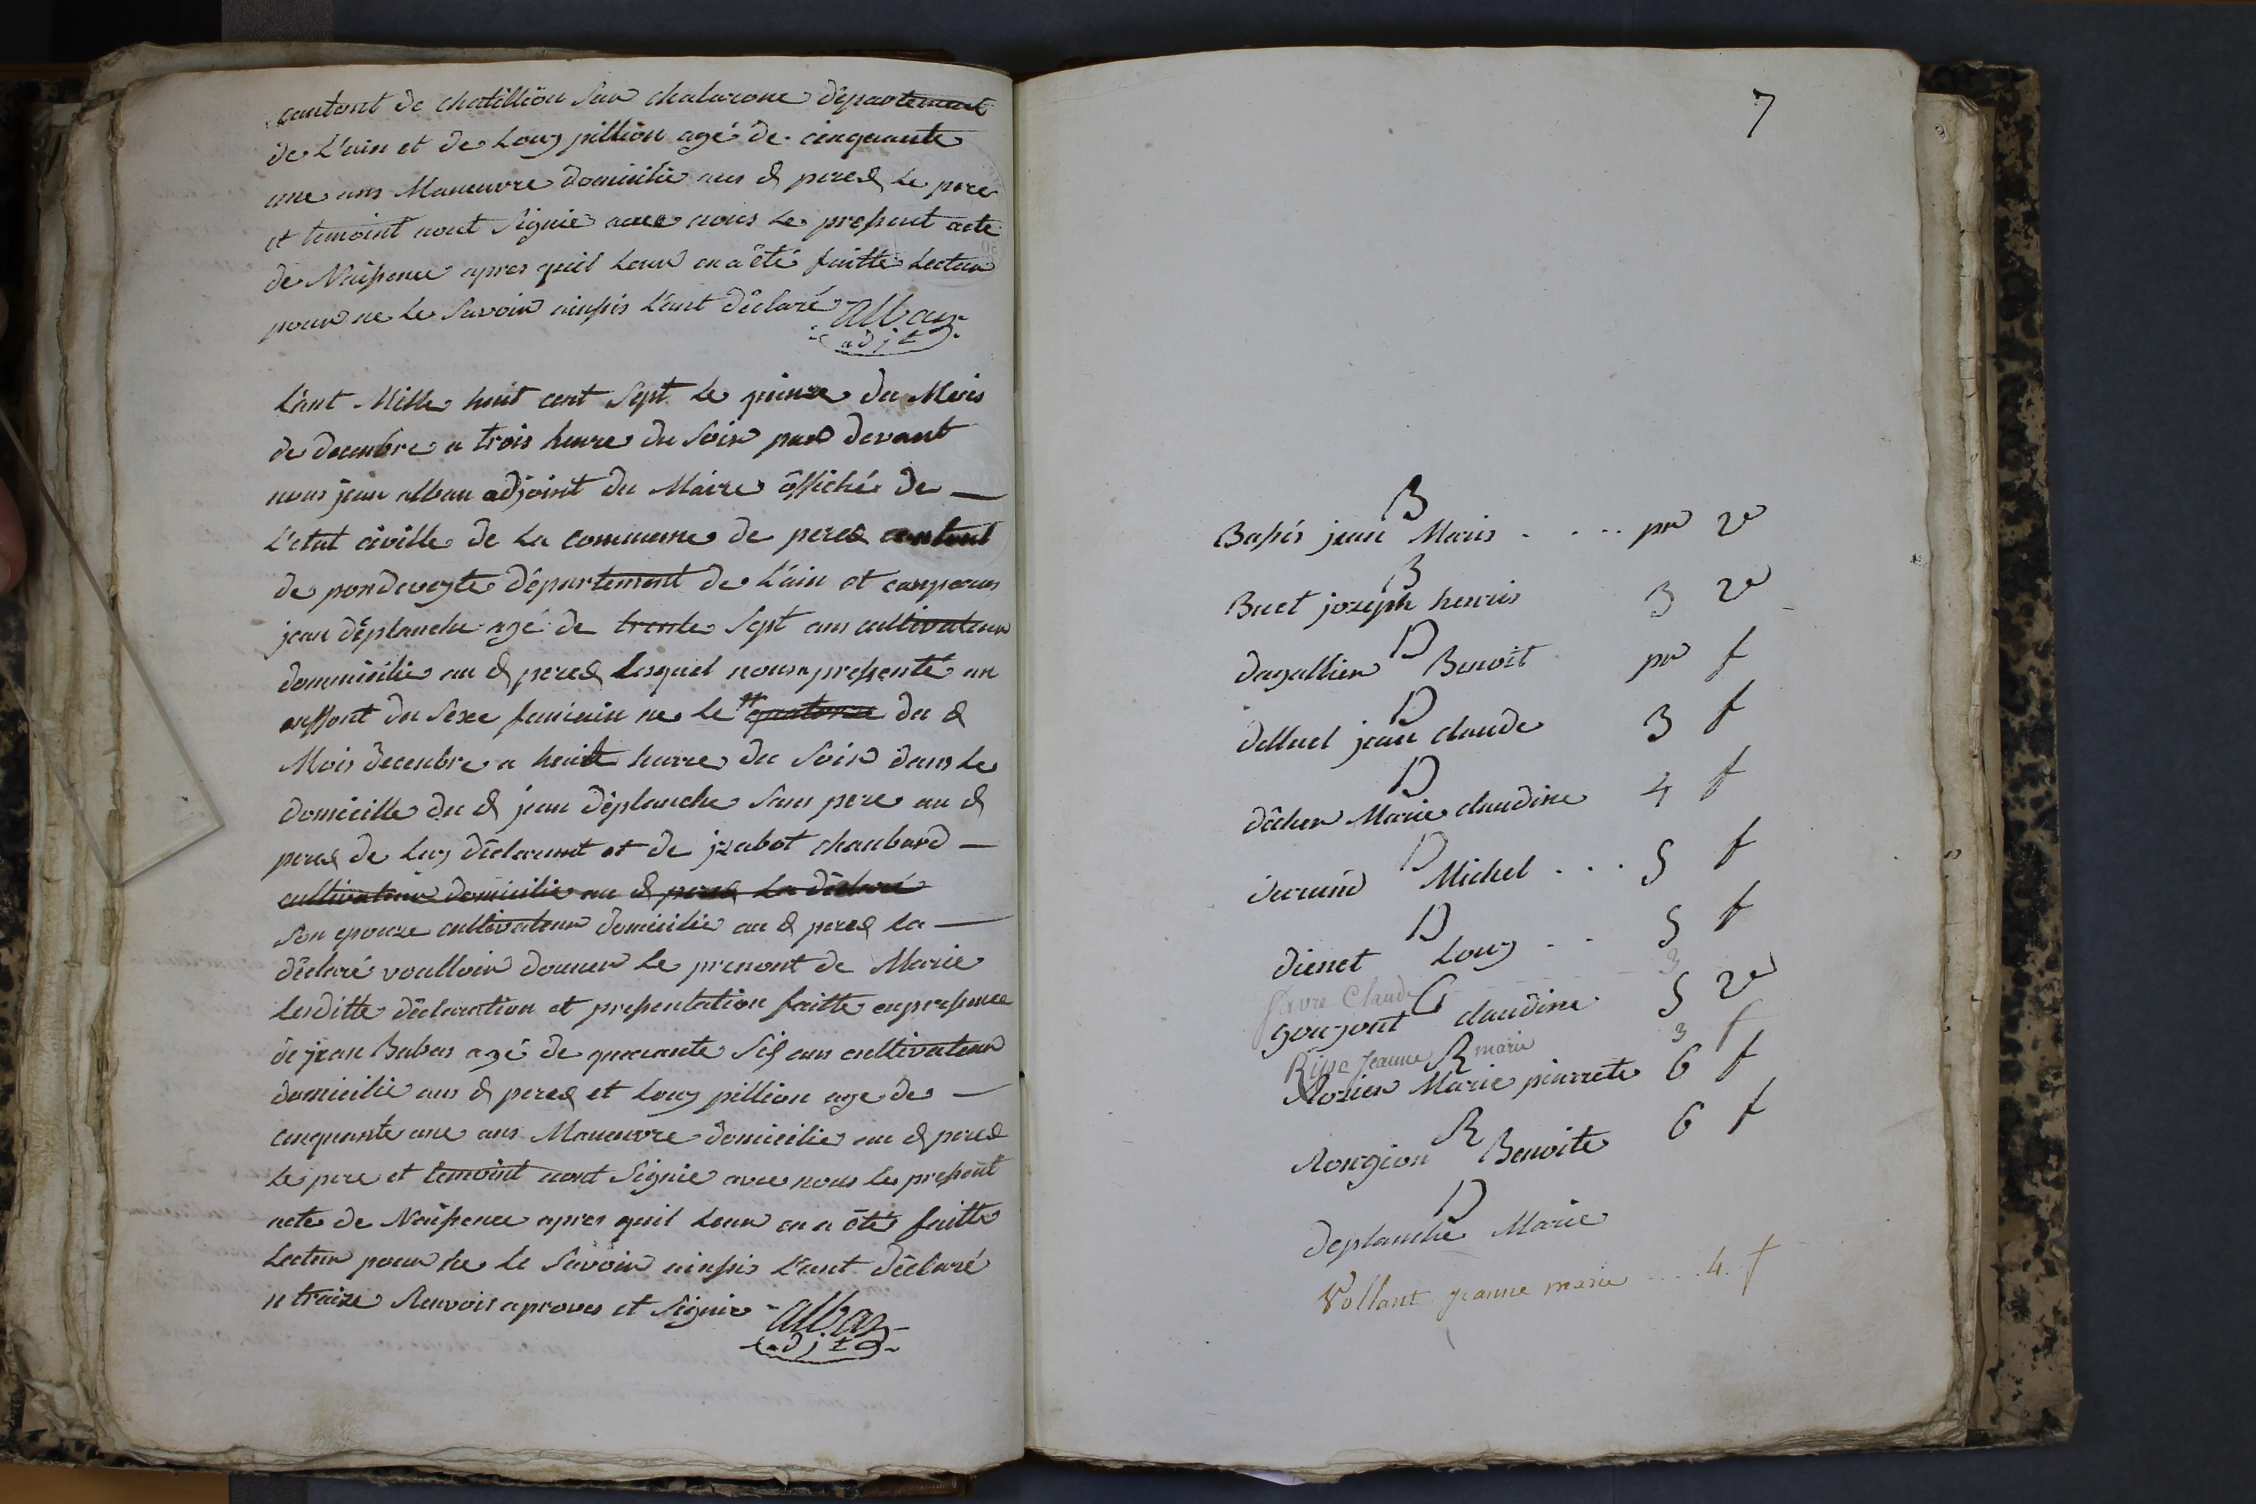 cantont de chatillion Sur chalarone département
de L'ain et de Louy pillion agé de cinquante
une ans Maneuvre domicilié aus d peres Le pere
et temoint nont Signie avec nous Le present acte
de Naissence apres quil Leur en a été faitte Lecteur
pour ne Le Savoir ainssis L'ant déclaré alban
adjt
L'ant Mille huit cent Sept Le quinze du Mois
de decembre a trois heure du Soir pard devant
nous jean alban adjoint du Maire offiché de
L'etat civille de La commune de peres cantont
de pondeveyle département de L'ain et conparus
jean déplanche agé de trente Sept ans cultivateur
dommicilie au d peres Lequel nous a presenté un
enffont du Sexe feminin ne le quatorze du d
Mois decenbre a heuit heurre du Soir dans Le
domicille du d jean déplanche Sans pere au d
peres de Luy déclarant et de jzabot chanbard
cultivateur domicilie au d peres La déclaré
Son epouze cultivateur domicilie au d peres La
déclaré voulloir donner Le prenont de Marie
Lesditte déclaration et presentation faitte enpresence
de jean Babas agé de quarante Six ans cultivateur
domicilie aus d peres et Louy pillion age de
cinquante une ans Maneuvre domicilie au d peres
Le pere et temoint nont Signie avec nous Le present
acte de Naissence apres quil Leur en a été faitte
Lecteur pour ne Le Savoir ainssis L'ant déclaré
n traize Renvois aprouve et Signie alban
adjt
7
B
Bassis jean Maris . . . . pr 2e
B
Buet jozeph henris 3 2e
D
dagallier Benoit pr f
D
delluel jean claude 3 f
D
dêcher Marie claudine 4 f
D
durand Michel . . . 5 f
D
dienet Louy . . 5 f
favre Claude 3
G
goujont claudine 5 2e
Rippe Jeanne marie 3 f
R
Rozier Marie pierrete 6 f
R
Rongion Benoite 6 f
D
deplanche Marie
Vollant jeanne marie .... 4. f